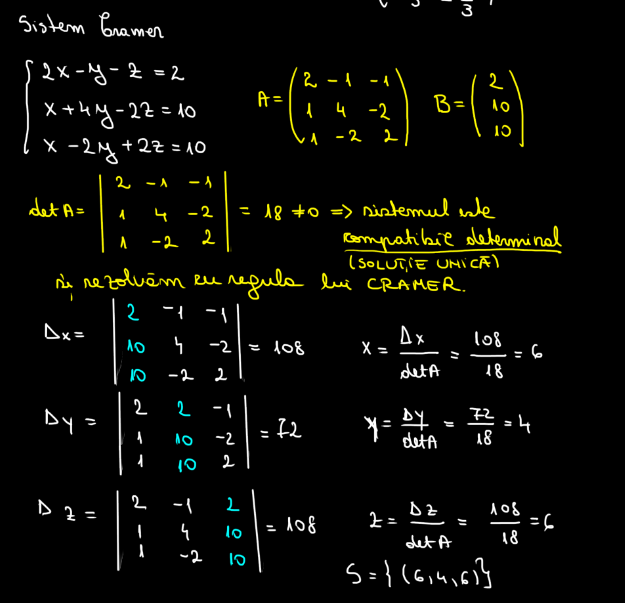 3 - 3
Sistem Cramer
2x - y - z = 2
x + 4y - 2z = 10
x - 2y + 2z = 10
A = ( 2 -1 -1
1 4 -2
1 -2 2 )
B = ( 2
10
10 )
det A = | 2 -1 -1
1 4 -2
1 -2 2 | = 18 ≠ 0 => sistemul este
compatibil determinat
(SOLUȚIE UNICĂ)
și rezolvăm cu regula lui CRAMER.
Δx = | 2 -1 -1
10 4 -2
10 -2 2 | = 108
x = Δx / det A = 108 / 18 = 6
Δy = | 2 2 -1
1 10 -2
1 10 2 | = 72
y = Δy / det A = 72 / 18 = 4
Δz = | 2 -1 2
1 4 10
1 -2 10 | = 108
z = Δz / det A = 108 / 18 = 6
S = { (6,4,6) }